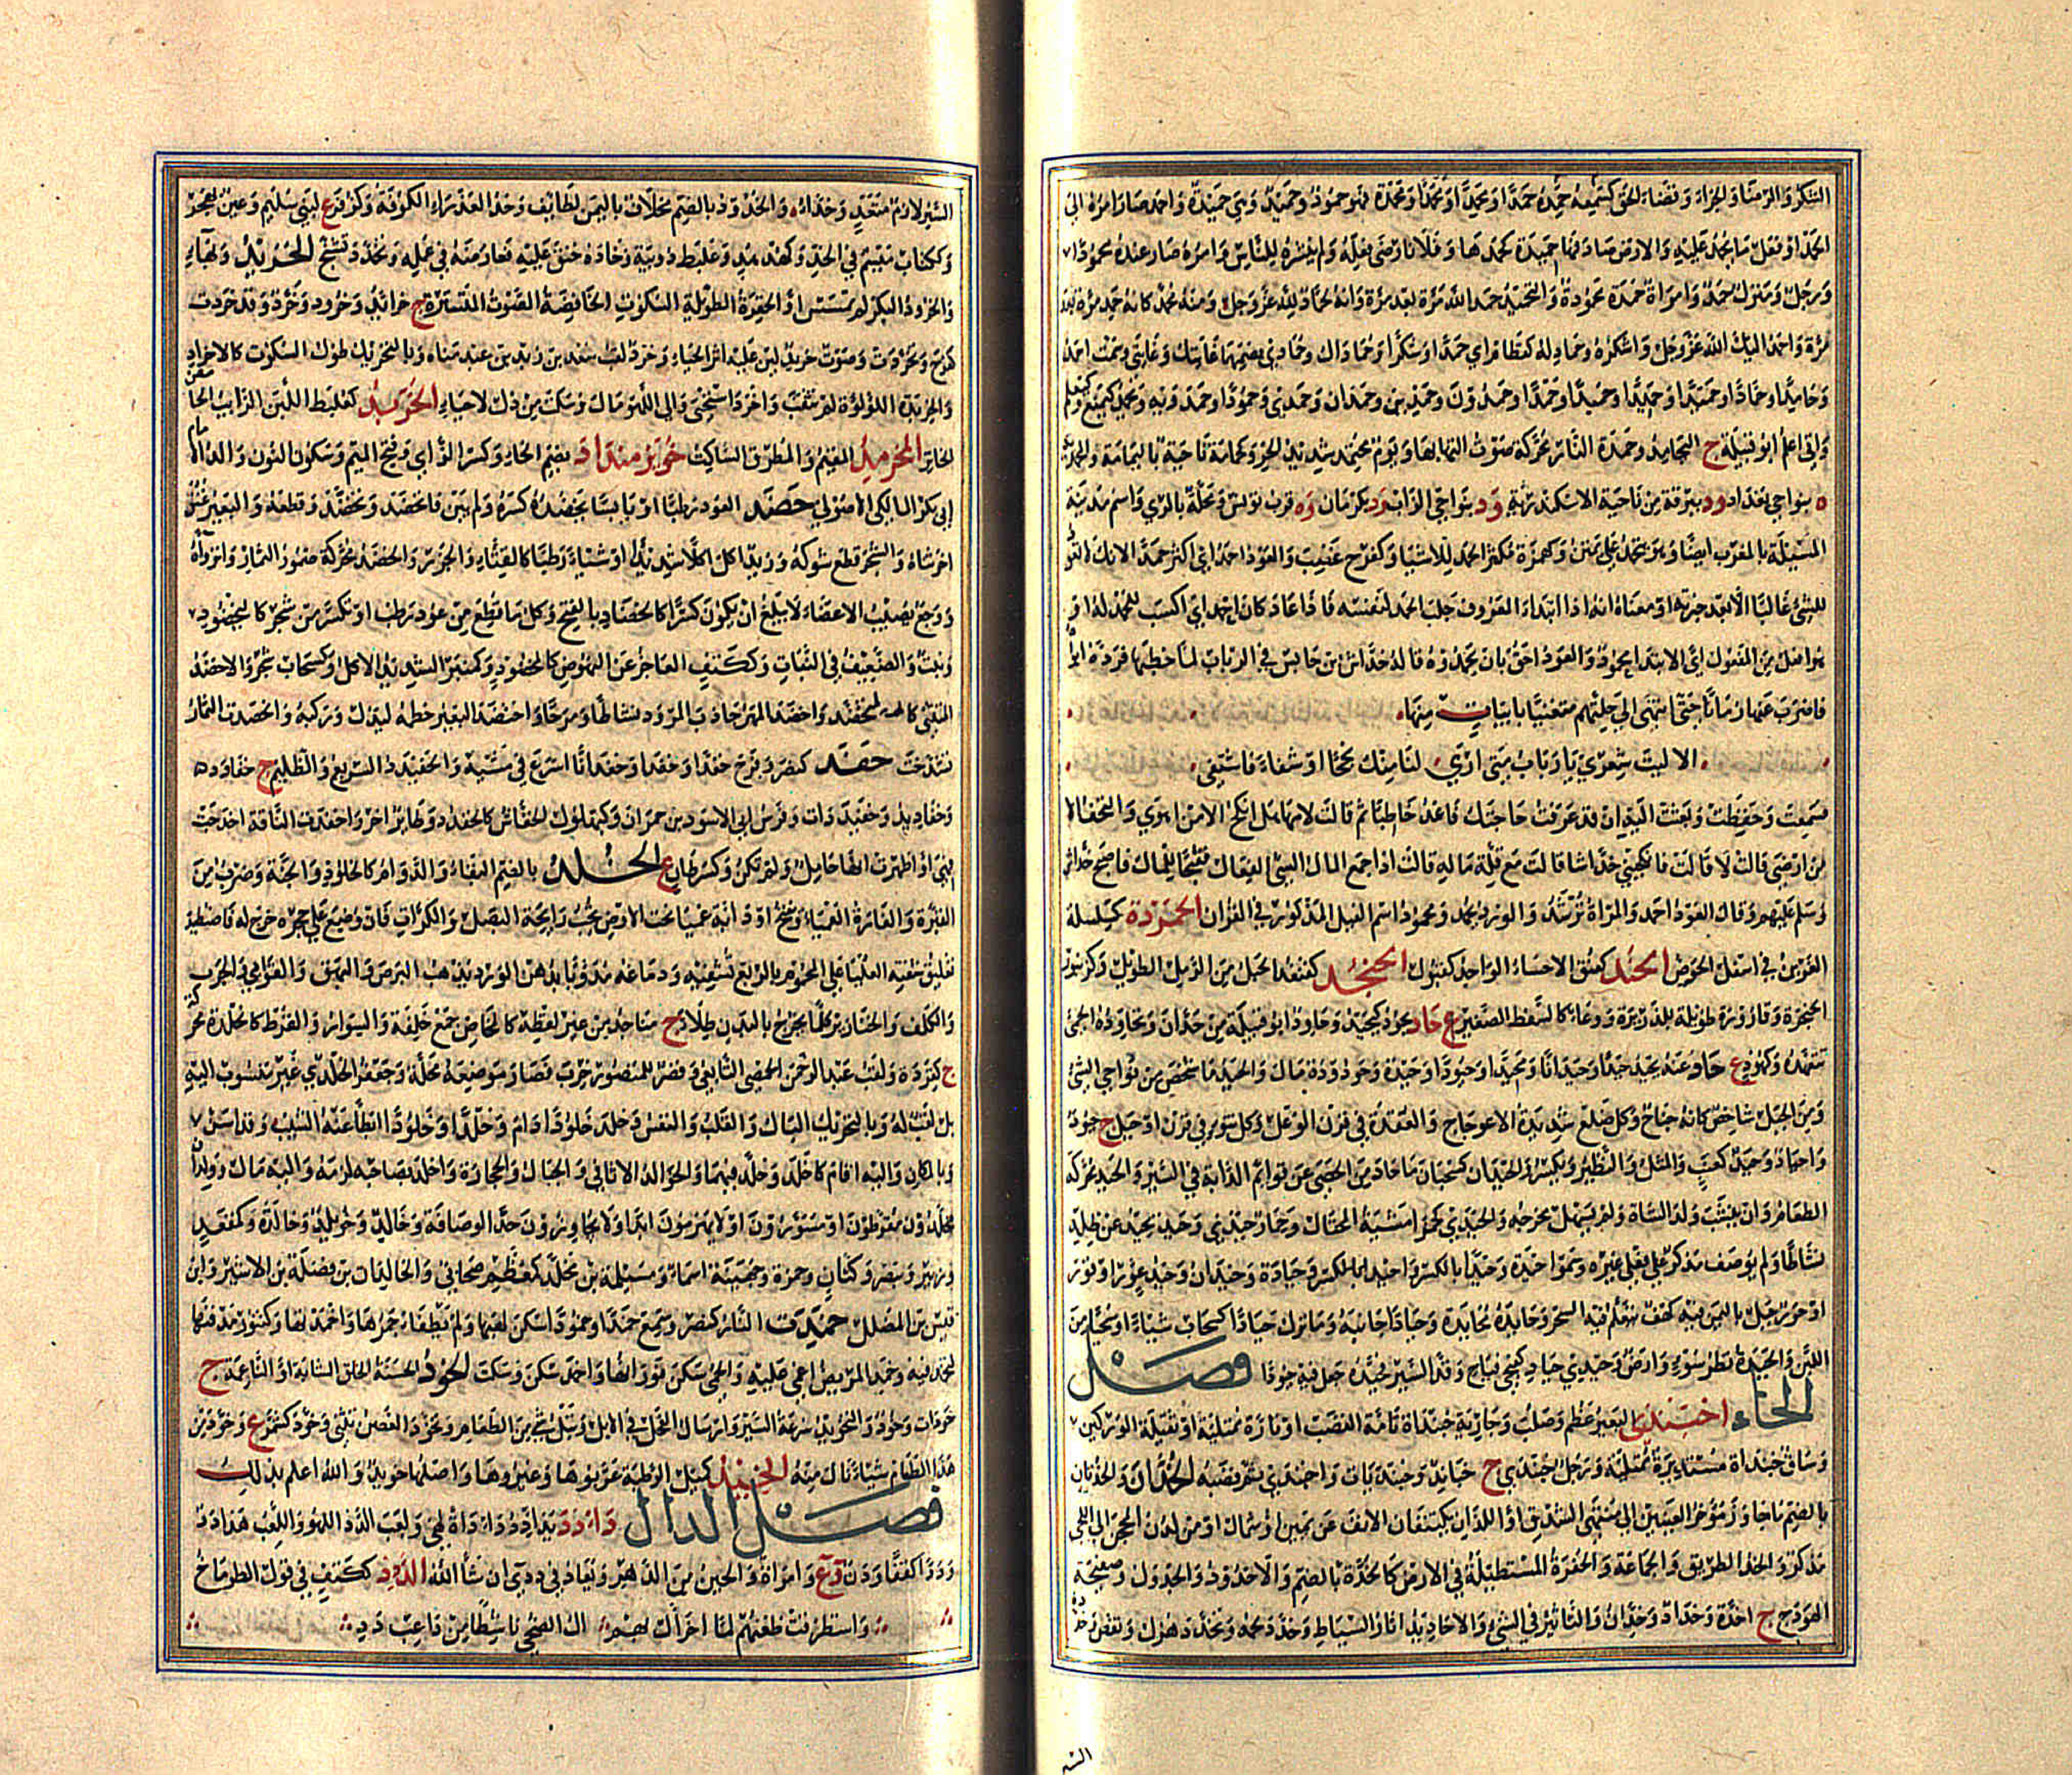 الشكر والرضا والجزاء وقضاء الحق كسمعه حمده حمدا ومحمدا ومحمدا ومحمدة فهو حمود وحميد وهي حميدة واحمد صار امره الى
الحمد او فعل ما يحمد عليه والارض صادفها حميدة كحمدها وفلانا رضى فعله ولم ينشره للناس وامره صار عنده محمودا
ورجل ومنزل حمد وامراة حمدة محمودة والتحميد حمد الله مرة بعد مرة وانه لحماد لله عز وجل ومنه محمد كانه حمد مرة بعد
مرة واحمد اليك الله عز وجل اشكره وحماد له كقطام اي حمدا وشكرا وحماداك وحمادي بضمهما غايتك وغايتي وسمت احمد
وحامدا وحمادا وحميدا وحميدا وحمدا وحمدون وحمدين وحمدان وحمدى وحمودا وحمدويه ويحمد كيمنع وكيعلم
واتى اعلم ابو قبيلة ج اليحامد وحمدة النار محركة صوت التهابها ويوم محتمد شديد الحر وكحمامة ناحية باليمامة والمحمدية
ه بنواحي بغداد ود ببرقة من ناحية الاسكندرية ود بنواحي الزاب ود بكرمان وه قرب تونس ومحلة بالري واسم مدينة
المسيلة بالمغرب ايضا وهو يتحمد علي يمتن وكهمزة مكثر الحمد للاشياء وكفرح غضب والعود احمد اي اكثر حمدا لانك لا تعود
للشيء غالبا الا بعد خبرته او معناه انه اذا ابتدا المعروف جلب الحمد لنفسه فاذا عاد كان احمد اي اكسب للحمد له او
هو افعل من المفعول اي الابتداء محمود والعود احق بان يحمدوه قاله خداش بن حابس في الرباب لما خطبها فرده ابواها
فاضرب عنها زمانا حتى انتهى الى حلتهم متغنيا بابيات منها
الا ليت شعري يا رباب متى ارى لنا منك نجحا او شفاء فاشتفى
فسمعت وحفظت وبعثت اليه ان قد عرفت حاجتك فاغد خاطبا ثم قالت لامها هل انكح الا من اهوى والتحف الا
من ارضى قالت لا قالت فانكحيني خداشا قالت مع قلة ماله قالت اذا جمع المال السيئ الفعال فقبحا للمال فاصبح خداش
وسلم عليهم وقال العود احمد والمراة ترشد والورد يحمد ومحمود اسم الفيل المذكور في القران الحمردة كسلسلة
الغرين في اسفل الحوض الحند كعنق الاحساء الواحد كقبول الحنجد كقنفذ الحبل من الرمل الطويل وكزنبور
الحنجرة وقارورة طويلة للذريرة ووعاء كالسفط الصغير ع حاد يحود كيحيد وحاود ابو قبيلة من حدان وتحاوده الحمى
تتعهده وكهود ع حاد عنه يحيد حيدا وحيدانا ومحيدا وحيودا وحيدة وحيدودة مال والحيد ما شخص من نواحي الشئ
ومن الجبل شاخص كانه جناح وكل ضلع شديدة الاعوجاج والعقدة في قرن الوعل وكل نتو في قرن او جبل ج حيود
واحياد وحيد كعنب والمثل والنظير ويكسر والحيدان كسحبان ما حاد من الحصى عن قوائم الدابة في السير والحيد محركة
الطعام وان ينشب ولد الشاة ولم يسهل مخرجه والحيدى كجمزى مشية المختال وحمار حيدى وحيد يحيد عن ظله
نشاطا ولم يوصف مذكر على فعلى غيره وسموا حيدة وحيدا بالكسر واحيد ابا لكسر وحيادة وحيدان وحيد عور او قور
او حور جبل باليمن فيه كهف يتعلم فيه السحر وحايده محايدة وحيادا جانبه وما ترك حيادا كسحاب شيئا او شخبا من
اللبن والحيدة نظر سوء وارض وحيدى حياد كفيحي فياح وقد السير حيده جعل فيه حيودا فصل
الخاء اخبندى البعير عظم وصلب وجارية خبنداة تامة القصب او تارة ممتلئة او ثقيلة الوركين
وساق خبنداة مستديرة ممتلئة ورجل خبندى ج خبائد وخبنديات واخبندى تم قصبه الخدان والخدتان
بالضم ما جاوز مؤخر العينين الى منتهى الشدق او اللذان يكتنفان الانف عن يمين وشمال او من لدن المحجر الى اللحى
مذكر والخد الطريق والجماعة والحفرة المستطيلة في الارض كالخدة بالضم والاخدود والجدول وصفيحة
الهودج ج اخدة وخداد وخدان والتاثير في الشيء والاخاديد اثار السياط وخدد لحمه وتخدد هزل ونقص وخدده
السير لازم متعد وخداء والخدود بالضم مخلاف باليمن لطائف وخد العذراء الكوفة وكزفر ع لبنى سليم وعين بهجر
وككتاب ميسم في الخد وكهدهد وعلبط دويبة وخاده حنق عليه فعارضه في عمله وتخدد تشنج الخريد وبهاء
والخرود البكر لم تمسس او الخفرة الطويلة السكوت الخافضة الصوت المتسترة ج خرائد وخرد وخرد وقد خردت
كفرح وتخردت وصوت خريد لين عليه اثر الحياء وخرد لقب سعد بن زيد بن عبد مناه وبالتحريك طول السكوت كالاخراد
والخريدة اللؤلؤة لم تثقب واخرد استحيى والى اللهو مال وسكت من ذل لا حياء الخرمد كعلبط اللبن الرايب الحامض
الخاثر المخرمد المقيم والمطرق الساكت خويز منداد بضم الخاء وكسر الزاي وفتح الميم وسكون النون والد الامام
ابي بكر المالكي الاصولي خضد العود رطبا او يابسا يخضده كسره ولم يبن فانخضد وتخضد وقطعه والبعير عنق
اخر ثناه والشجر قطع شوكه وزيد اكل اكلا شديدا او شيئا رطبا كالقثاء والجزر والخضد محركة ضمور الثمار وانزواه
ووجع يصيب الاعضاء لا يبلغ ان يكون كسرا كالخضاد بالفتح وكل ما قطع من عود رطب او تكسر من شجر كاليخضود
ونبت والضعيف في النبات وككتف العاجز عن النهوض كالمخضود وكمنبر الشديد الاكل وكسحاب شجر والاخضد
المتثني كالمتخضد واخضد المهر جاذب المرود نشاطا ومرحا واختضد البعير خطمه ليذل وركبه وانخضدت الثمار
تشدخت خفد كنصر وفرح خفدا وخفدا وخفدانا اسرع في مشيه والخفيدد السريع والظليم ج خفادد
وخفاديد وخفيددات وفرس ابي الاسود بن حمران وكبهلول الخفاش كالخفدد وطائر اخر واخفدت الناقة اخدجت
فهي او اظهرت انها حامل ولم تكن وكسرطان ع الخلد بالضم البقاء والدوام كالخلود والجنة وضرب من
القبرة والفارة العمياء ويفتح او دابة عمياء تحت الارض تحب رايحة البصل والكراث فان وضع على جحره خرج له فاصطيد
تعليق شفته العليا على المحموم بالربع تشفيه ودماغه مدوفا بدهن الورد يذهب البرص والبهق والقوابي والجرب
والكلف والخنازير وكلما يخرج بالبدن طلاء ج مناجد من غير لفظه كالمخاض جمع خلفة والسوار والقرط كالخلدة محركة
ج كقردة ولقب عبد الرحمن الحمصي التابعي وقصر للمنصور خرب فصار موضعه محلة وجعفر الخلدى غير منسوب اليه
بل لقب له وبالتحريك البال والقلب والنفس وخلد خلودا دام وخلدا وخلودا ابطا عنه الشيب وقد اسن
وبالمكان واليه اقام كاخلد وخلد فيهما والخوالد الاثافي والجبال والحجارة واخلد بصاحبه لزمه واليه مال وولدان
مخلدون مقرطون او مسورون او لا يهرمون ابدا ولا يجاوزون حد الوصافة وخالد وخويلد وخالدة وكمقعد
وزبير وينصر وكتان وحمزة وجهينة اسماء ومسيلمة بن مخلد كمعظم صحابي والخالدان بن نضلة بن الاشتر وابن
قيس بن المضلل خمدت النار كنصر وسمع خمدا وخمودا سكن لهبها ولم يطفا جمرها واخمدتها وكتنور مدفنها
لتخمد فيه وخمد المريض اغمي عليه والحمى سكن فورانها واخمد سكن وسكت الخود الحسنة الخلق الشابة او الناعمة ج
خودات وخود والتخويد سرعة السير وارسال الفحل في الابل ونيل شيء من الطعام وتخود الغصن تثنى وخود كشمر ع وخود من
هذا الطعام شيئا نال منه الخبيد كميل الرطبة عربوها وغيروها واصلها خويد والله اعلم بذلك
فصل الدال داددد يداددددادة لهي ولعب الدد اللهو واللعب هذا دد
وددا كقفا وددن وع وامراة والحين من الدهر ويعاد في ددى ان شا الله الدود ككتف في قول الطرماح
واستطرقت ظعنهم لما احزال بهم ال الضحى ناشطا من داعب دد